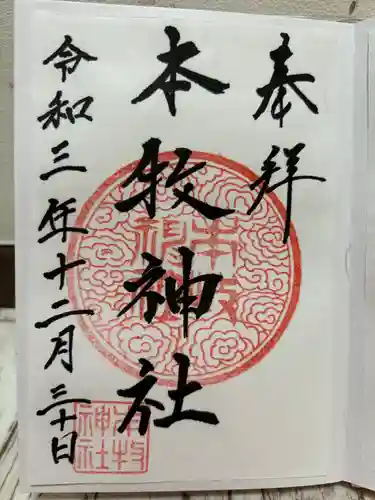 奉拝
本牧神社
令和三年十二月三十日
本牧
神社
本牧
神社